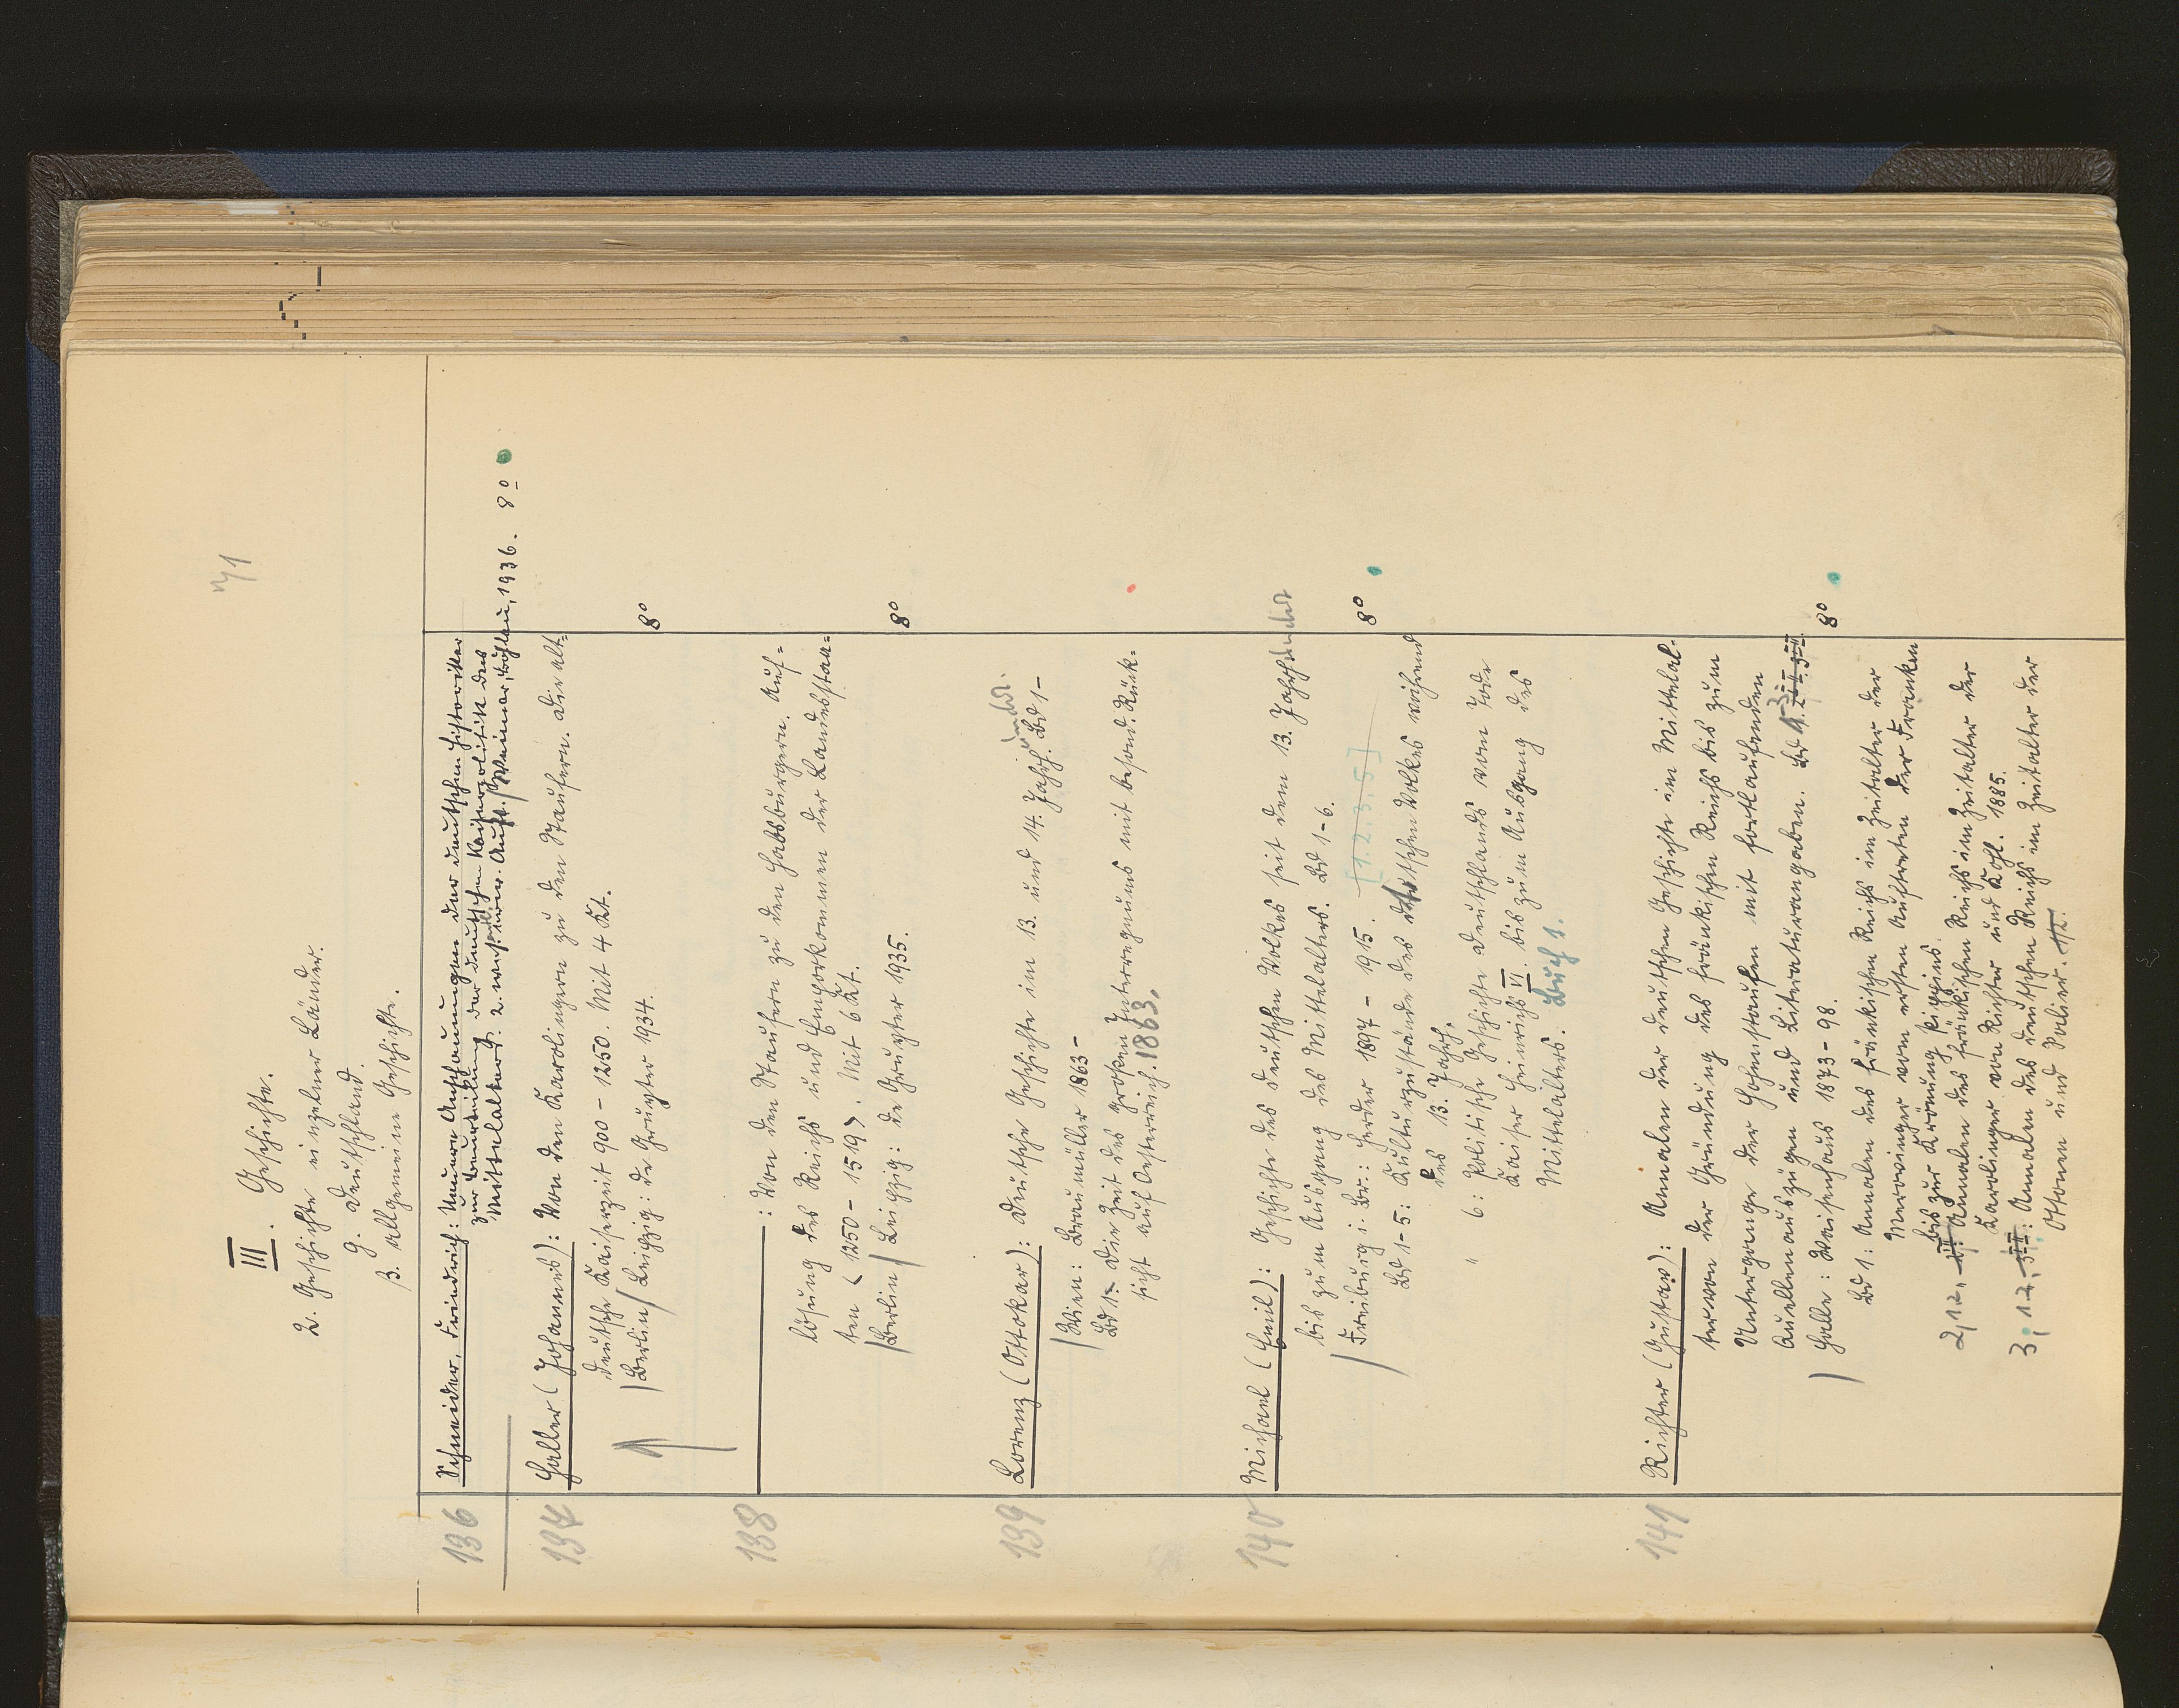 71
III. Geschichte.
2. Geschichte einzelner Länder.
g. Deutschland.
β. Allgemeine Geschichte.
136 Schneider, Friedrich: Neuere Anschauungen der deutschen Historiker
zur Beurteilung der deutschen Kaiserpolitik des
Mittelalters. 2. Aufl. Weimar, Böhlau, 1936. 8°
137 Haller (Johannes): Von den Karolingern zu den Staufern. Die alt-
deutsche Kaiserzeit 900 - 1250. Mit 4 Kt.
Berlin / Leipzig: de Gruyter 1934. 8°
138 ———: Von den Staufern zu den Habsburgern. Auf-
lösung des Reichs und Emporkommen der Landesstaa-
ten < 1250 - 1519 >. Mit 6 Kt.
Berlin / Leipzig: de Gruyter 1935. 8°
139 Lorenz (Ottokar): Deutsche Geschichte im 13. und 14. Jahrhundert. Bd 1-
Wien: Braumüller 1863-
Bd 1. Die Zeit des großen Interregnums mit besond. Rück-
sicht auf Oesterreich. 1863.
140 Michael (Emil): Geschichte des deutschen Volkes seit dem 13. Jahrhundert
bis zum Ausgang des Mittelalters. Bd 1-6.
Freiburg i. Br.: Herder 1897 - 1915. [1. 2. 3. 5] 8°
Bd 1-5: Kulturzustände des deutschen Volkes während
des 13. Jahrh.
" 6: Politische Geschichte Deutschlands vom Tode
Kaiser Heinrichs VI. bis zum Ausgang des
Mittelalters. Buch 1.
141 Richter (Gustav): Annalen der deutschen Geschichte im Mittelal-
ter von der Gründung des fränkischen Reichs bis zum
Untergange der Hohenstaufen mit fortlaufenden
Quellenauszügen und Literaturangaben. Bd 1-3
Halle: Waisenhaus 1873-98. 8°
Bd 1: Annalen des fränkischen Reichs im Zeitalter der
Merowinger vom ersten Auftreten der Franken
bis zur Krönung Pippins.
2,1.2. II: Annalen des fränkischen Reichs im Zeitalter der
Karolinger von Richter und Kohl. 1885.
3,1.2. III: Annalen des deutschen Reichs im Zeitalter der
Ottonen und Salier.